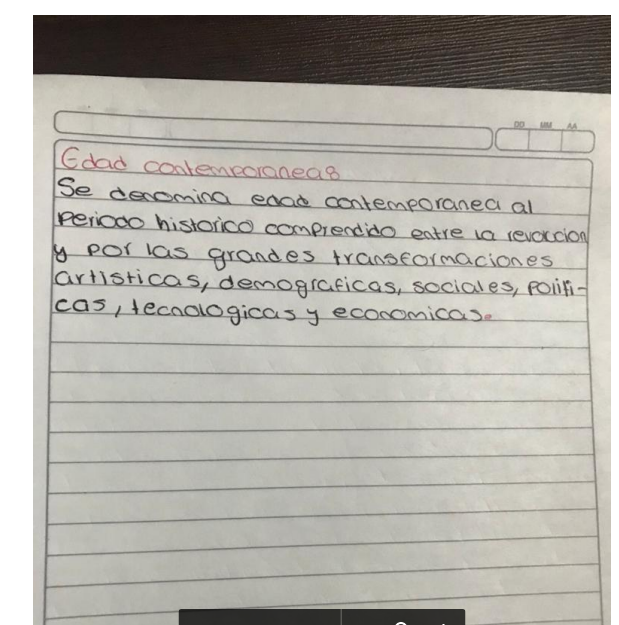 DD MM AA
Edad contemporaneas
Se denomina edad contemporanea al
periodo historico comprendido entre la revorcion
y por las grandes transformaciones
artisticas, demograficas, sociales, politi-
cas, tecnologicas y economicas.